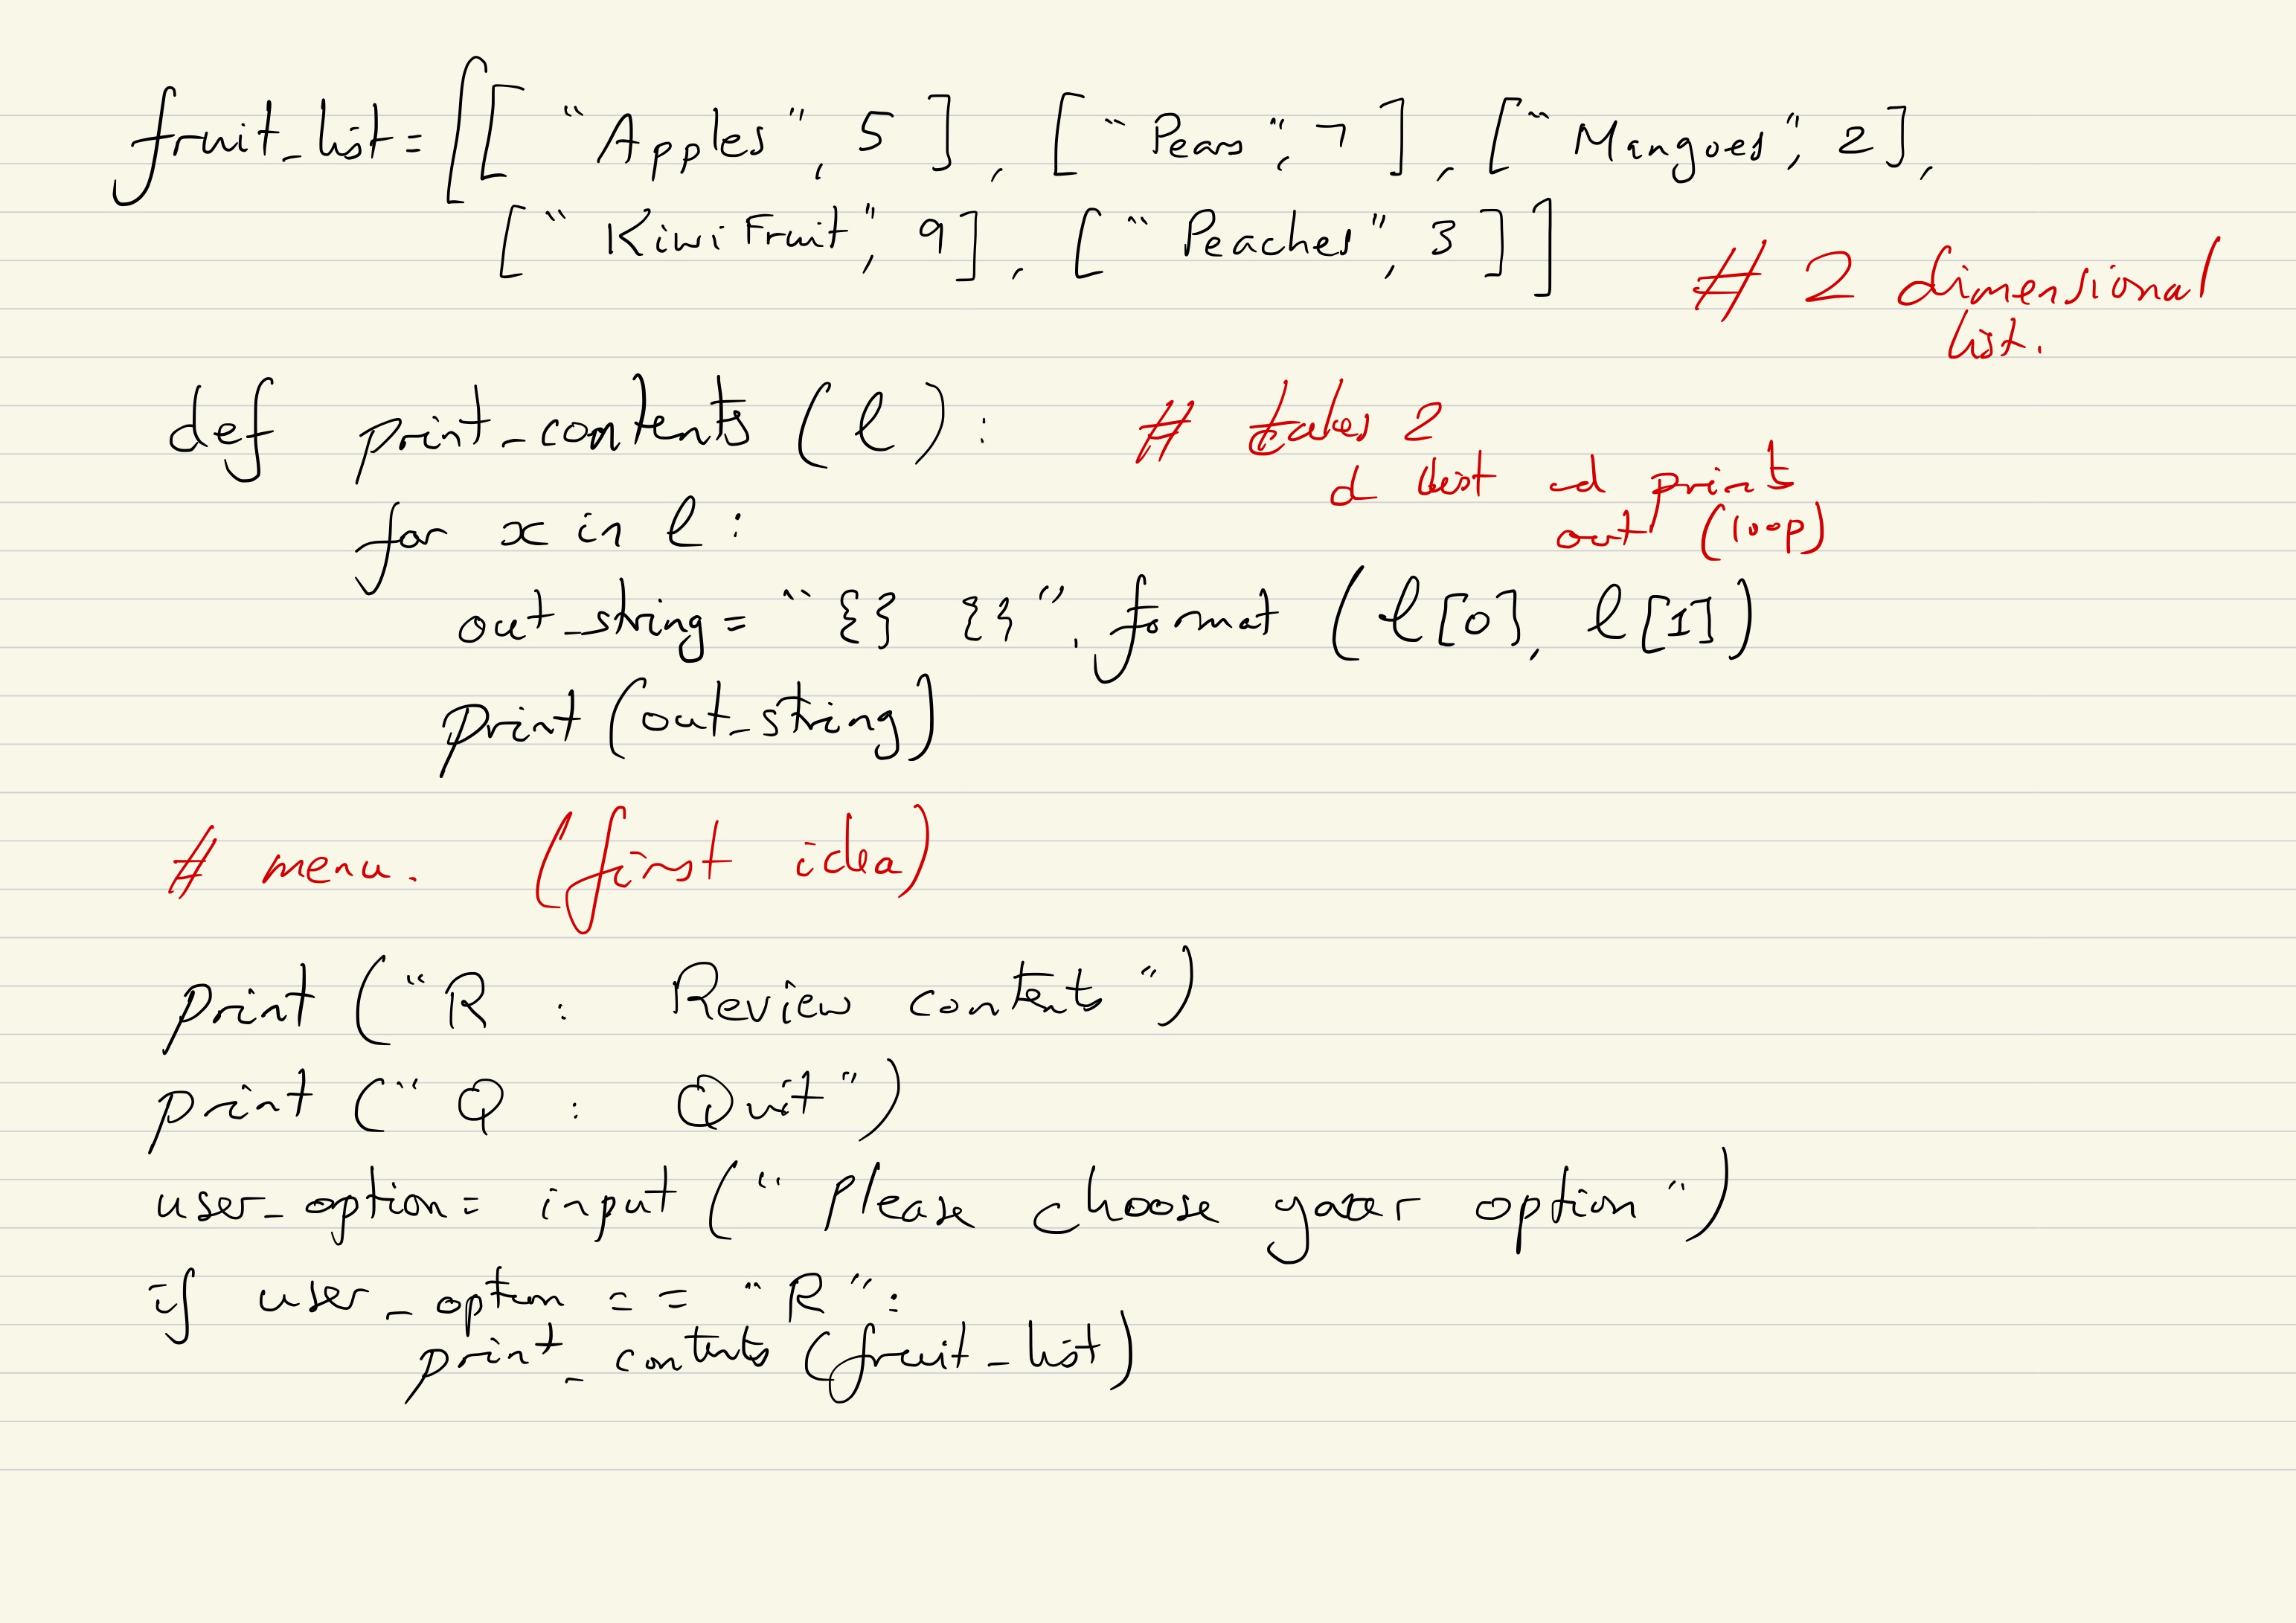 fruit_list = [[ "Apples", 5 ], [ "Pears", 7 ], [ "Mangoes", 2 ],
[ "KiwiFruit", 9 ], [ "Peaches", 3 ]]
# 2 dimensional
list.
def print_contents (l) :
# takes 2
d list and prints
out (loop)
for x in l :
out_string = "{} {}".format (l[0], l[1])
print (out_string)
# menu. (first idea)
print ("R : Review contents")
print ("Q : Quit")
user_option = input ("Please choose your option")
if user_option == "R":
print_contents (fruit_list)